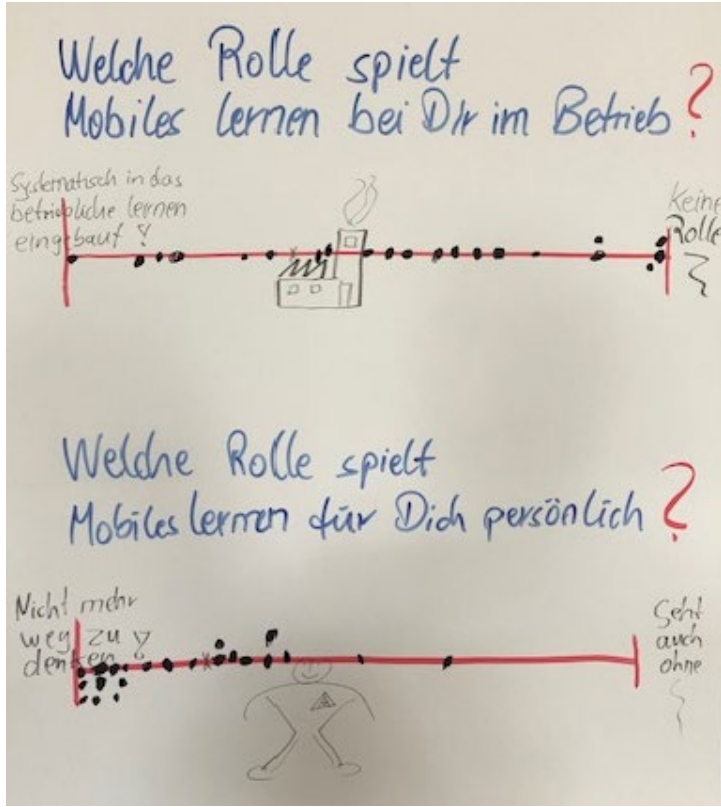 Welche Rolle spielt
Mobiles lernen bei Dir im Betrieb ?
Systematisch in das
betriebliche lernen
eingebaut !
Keine
Rolle
Welche Rolle spielt
Mobiles lernen für Dich persönlich ?
Nicht mehr
weg zu
denken !
Geht
auch
ohne